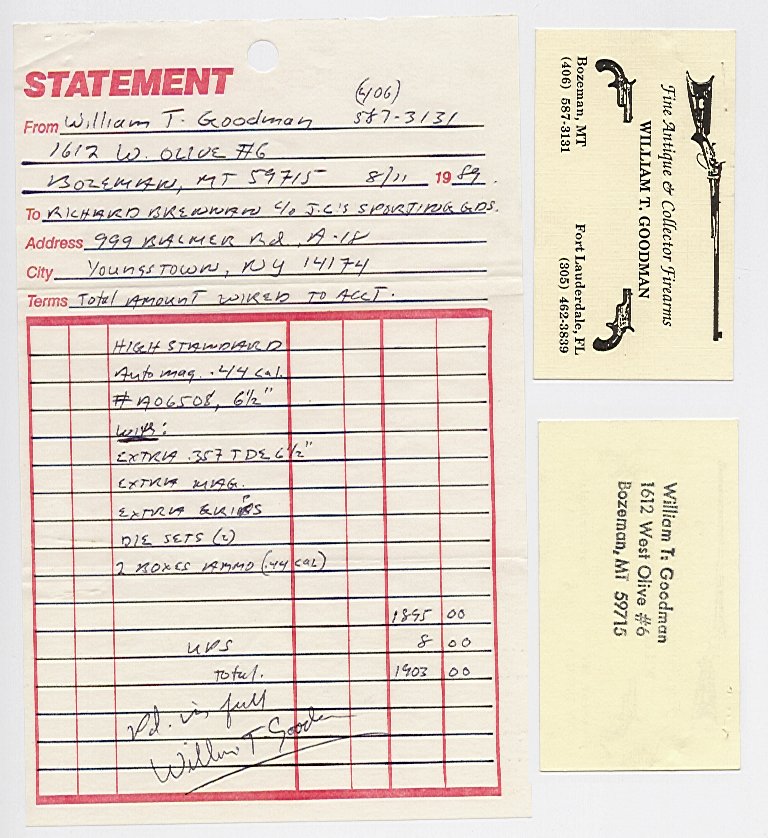 STATEMENT
(406)
From William T. Goodman 587-3131
1612 W. OLIVE #6
BOZEMAN, MT 59715 8/11 1989.
To RICHARD BRENNAN C/O J.C'S SPORTING GDS.
Address 999 BALMER Rd. A-18
City YOUNGSTOWN, NY 14174
Terms Total AMOUNT WIRED TO ACCT.
HIGH STANDARD
Auto mag .44 cal.
# A06508, 6½"
With:
EXTRA .357 TDE 6½"
EXTRA MAG.
EXTRA GRIPS
DIE SETS (2)
2 BOXES AMMO (.44 cal)
1895 00
UPS 8 00
Total. 1903 00
Pd. in full
William T Goodman
Fine Antique & Collector Firearms
WILLIAM T. GOODMAN
Bozeman, MT Fort Lauderdale, FL
(406) 587-3131 (305) 462-3839
William T. Goodman
1612 West Olive #6
Bozeman, MT 59715